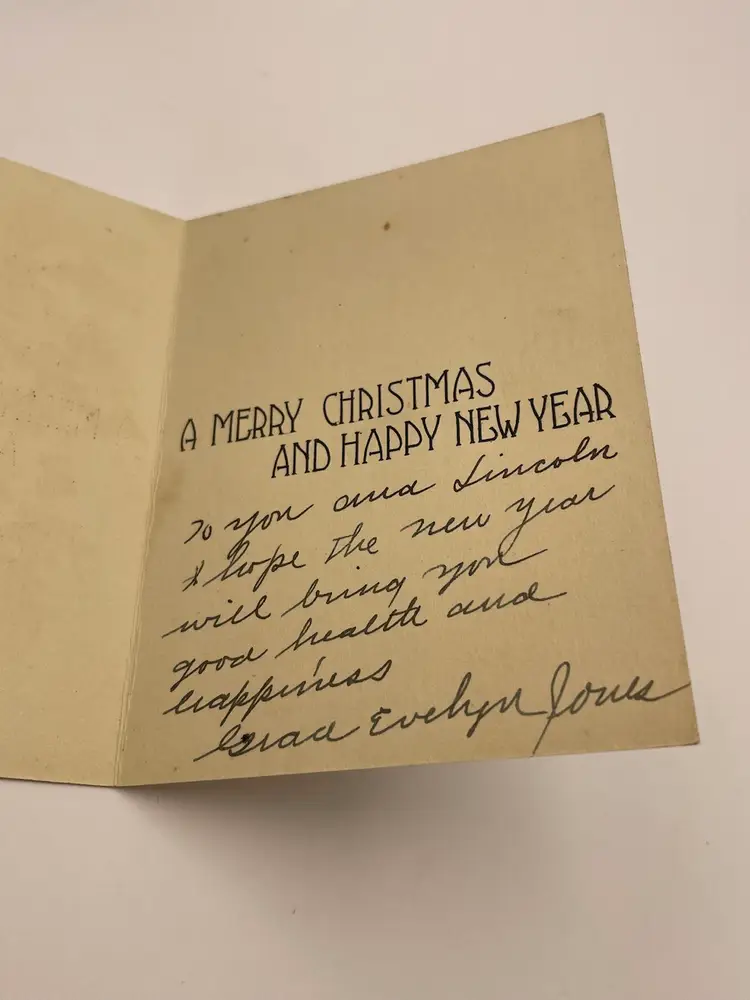 A MERRY CHRISTMAS
AND HAPPY NEW YEAR
To you and Lincoln
& hope the new year
will bring you
good health and
happiness
Evelyn Jones